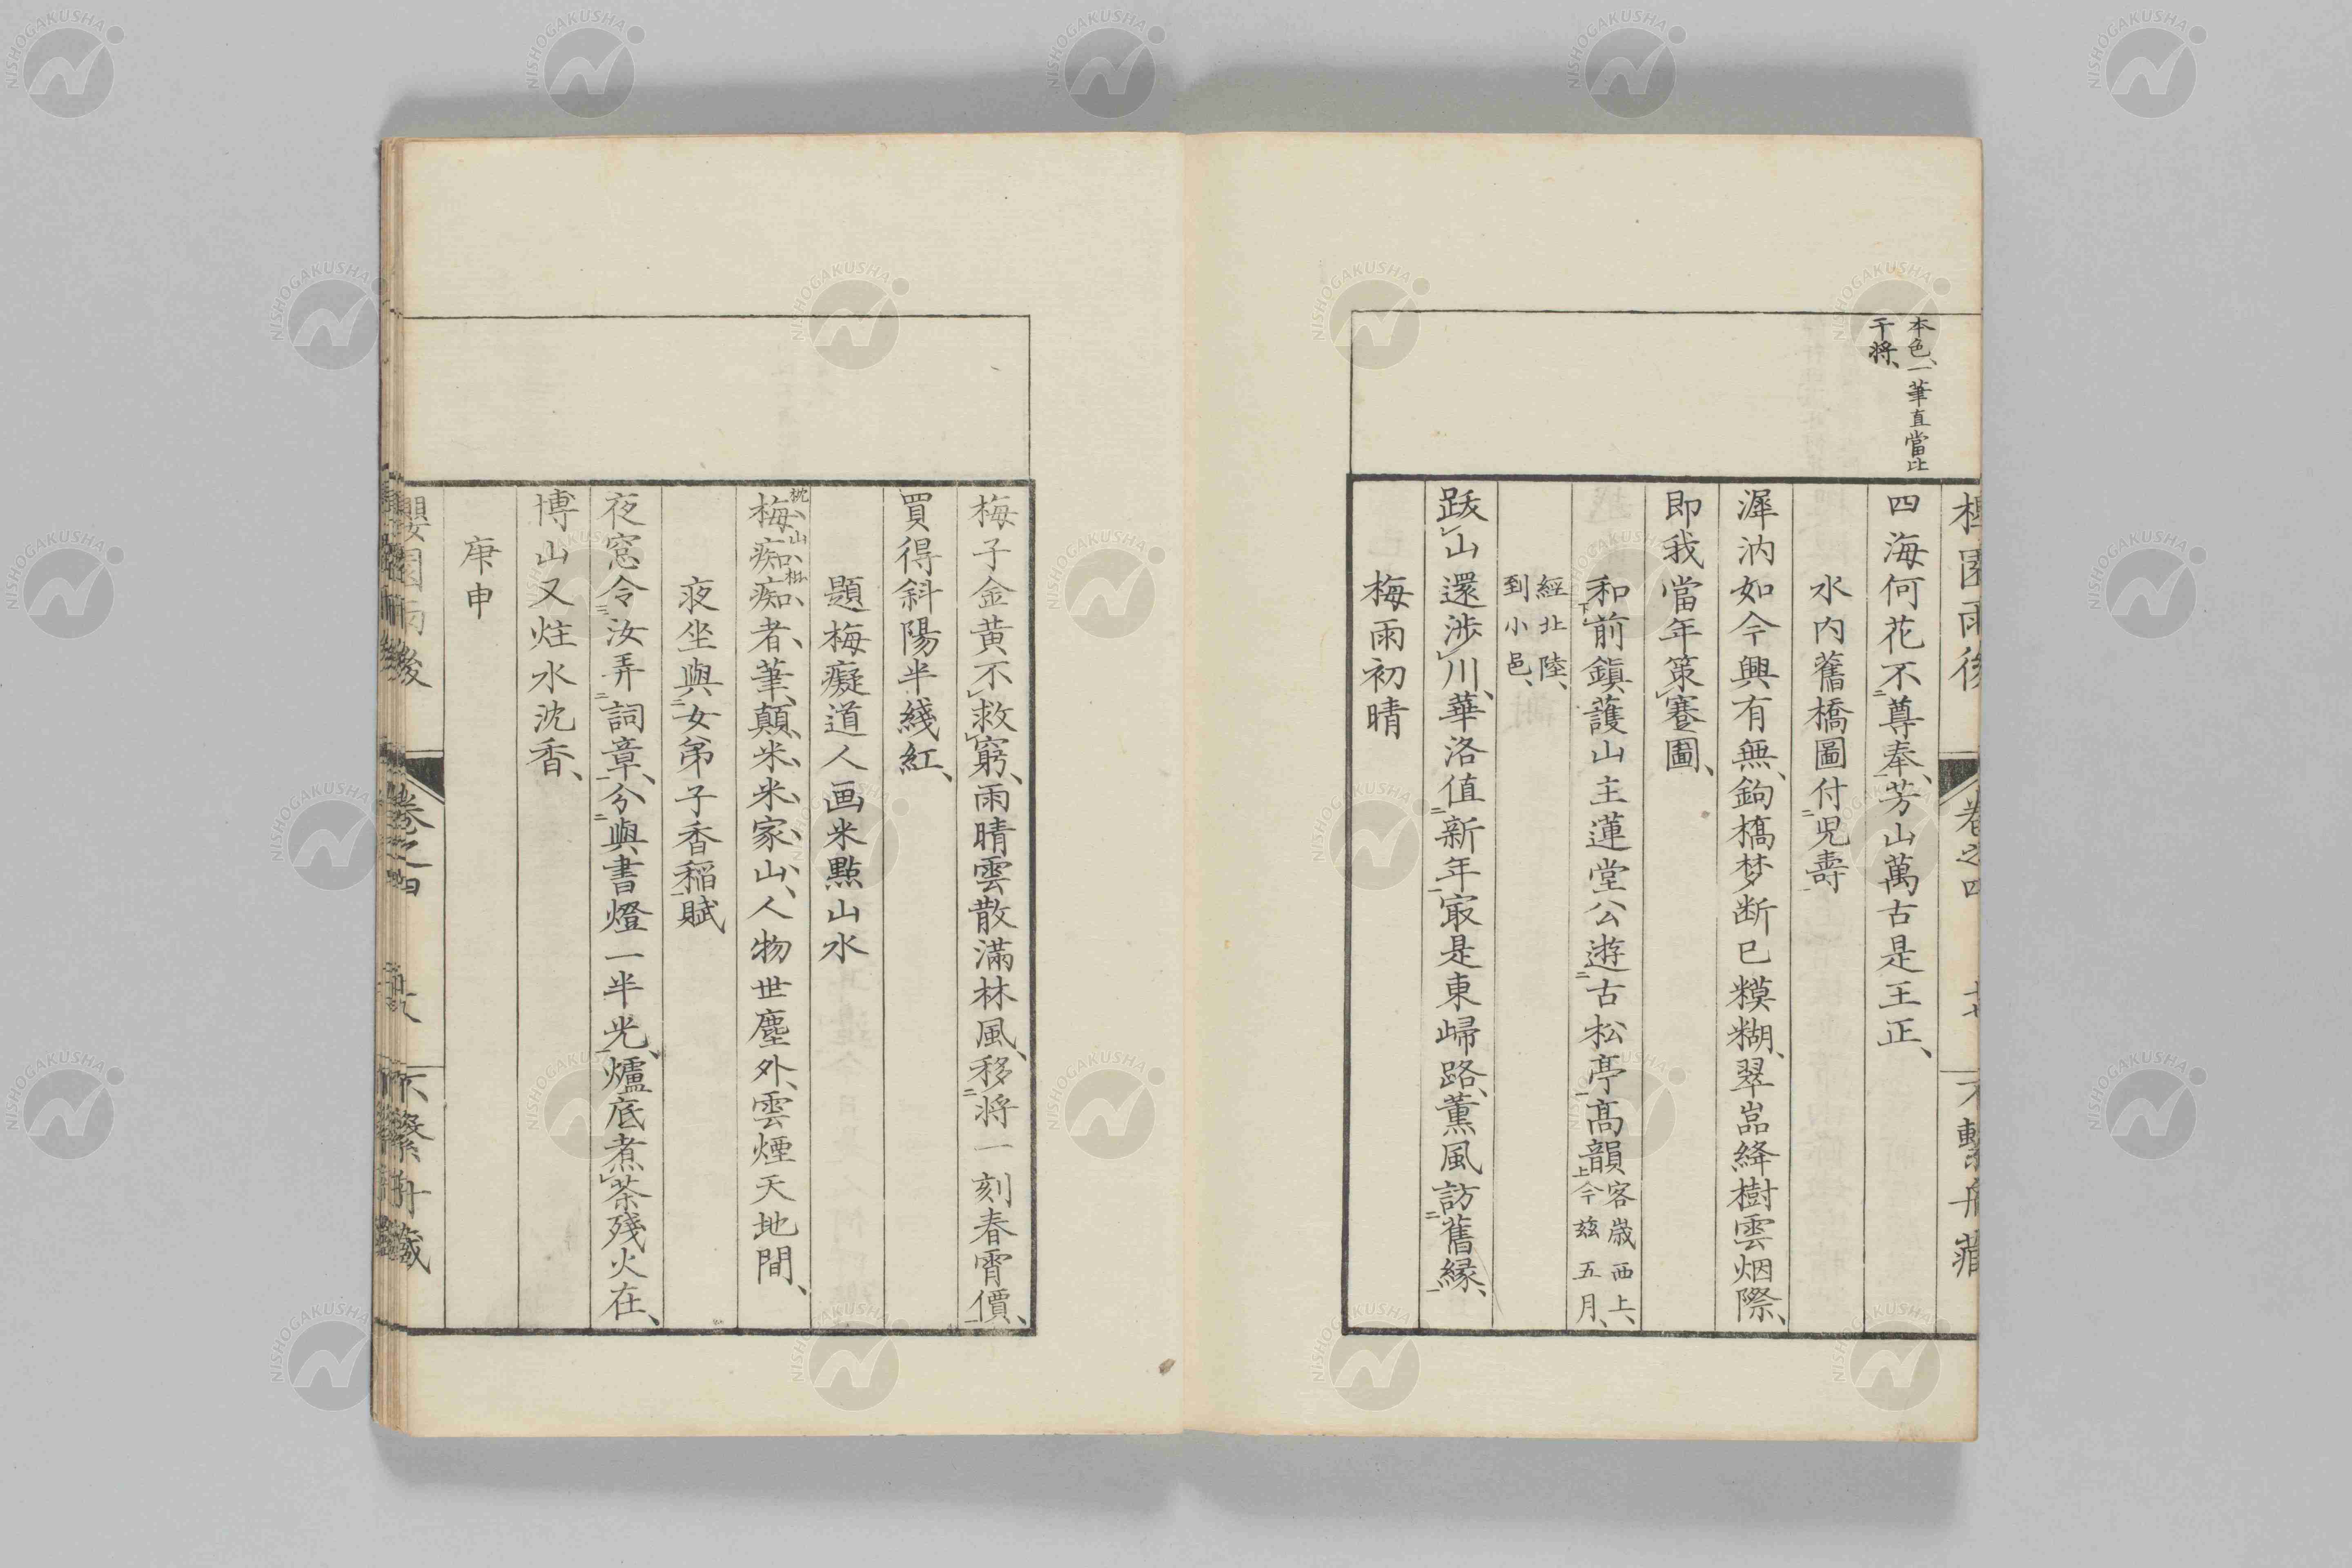 本色、一筆直當比
干将、
園雨後 卷之四 不繫舟藏
四海何花不尊奉、芳山萬古是王正、
水内舊橋圖付児壽
犀汭如今興有無、鉤橋梦断已糢糊、翠嵒絳樹雲烟際、
即我當年策蹇圖、
和前鎮護山主蓮堂公遊古松亭高韻 客歳西上、今玆五月、
經北陸、
到小邑、
跋山還渉川、華洛值新年、㝡是東歸路、薰風訪舊緣、
梅雨初晴
梅子金黃不救窮、雨晴雲散滿林風、移將一刻春霄價、
買得斜陽半綫紅、
題梅癡道人画米點山水
梅痴痴者、筆顛米、米家山、人物世塵外、雲煙天地間、
枕山、
夜坐與女弟子香稲賦
夜窓令汝弄詞章、分與書燈一半光、爐底煮茶殘火在、
博山又炷水沈香、
庚申
櫻園雨後 卷之四 不繫舟藏
NISHOGAKUSHA